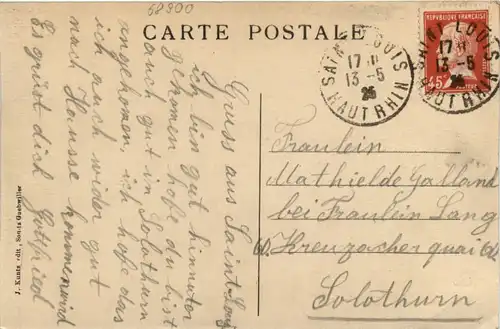 58900
CARTE POSTALE
Gruss aus Saint-Louis
ich bin gut hinunter
gekomen hofe du bist
auch gut in Solothurn
angekomen, ich hofe das
ich auch wider gut
nach Hausse kommen wird
Es grüst dich Gottfried
J. Kuntz, édit., Soultz-Guebwiller
SAINT LOUIS
17 H
13-5
25
HAUT RHIN
SAINT LOUIS
17 H
13-5
25
HAUT RHIN
REPUBLIQUE FRANÇAISE
45c
POSTES
Fraulein
Mathielde Galland
bei Fraulein Lang
60. Kreuzacher quai 60.
Solothurn